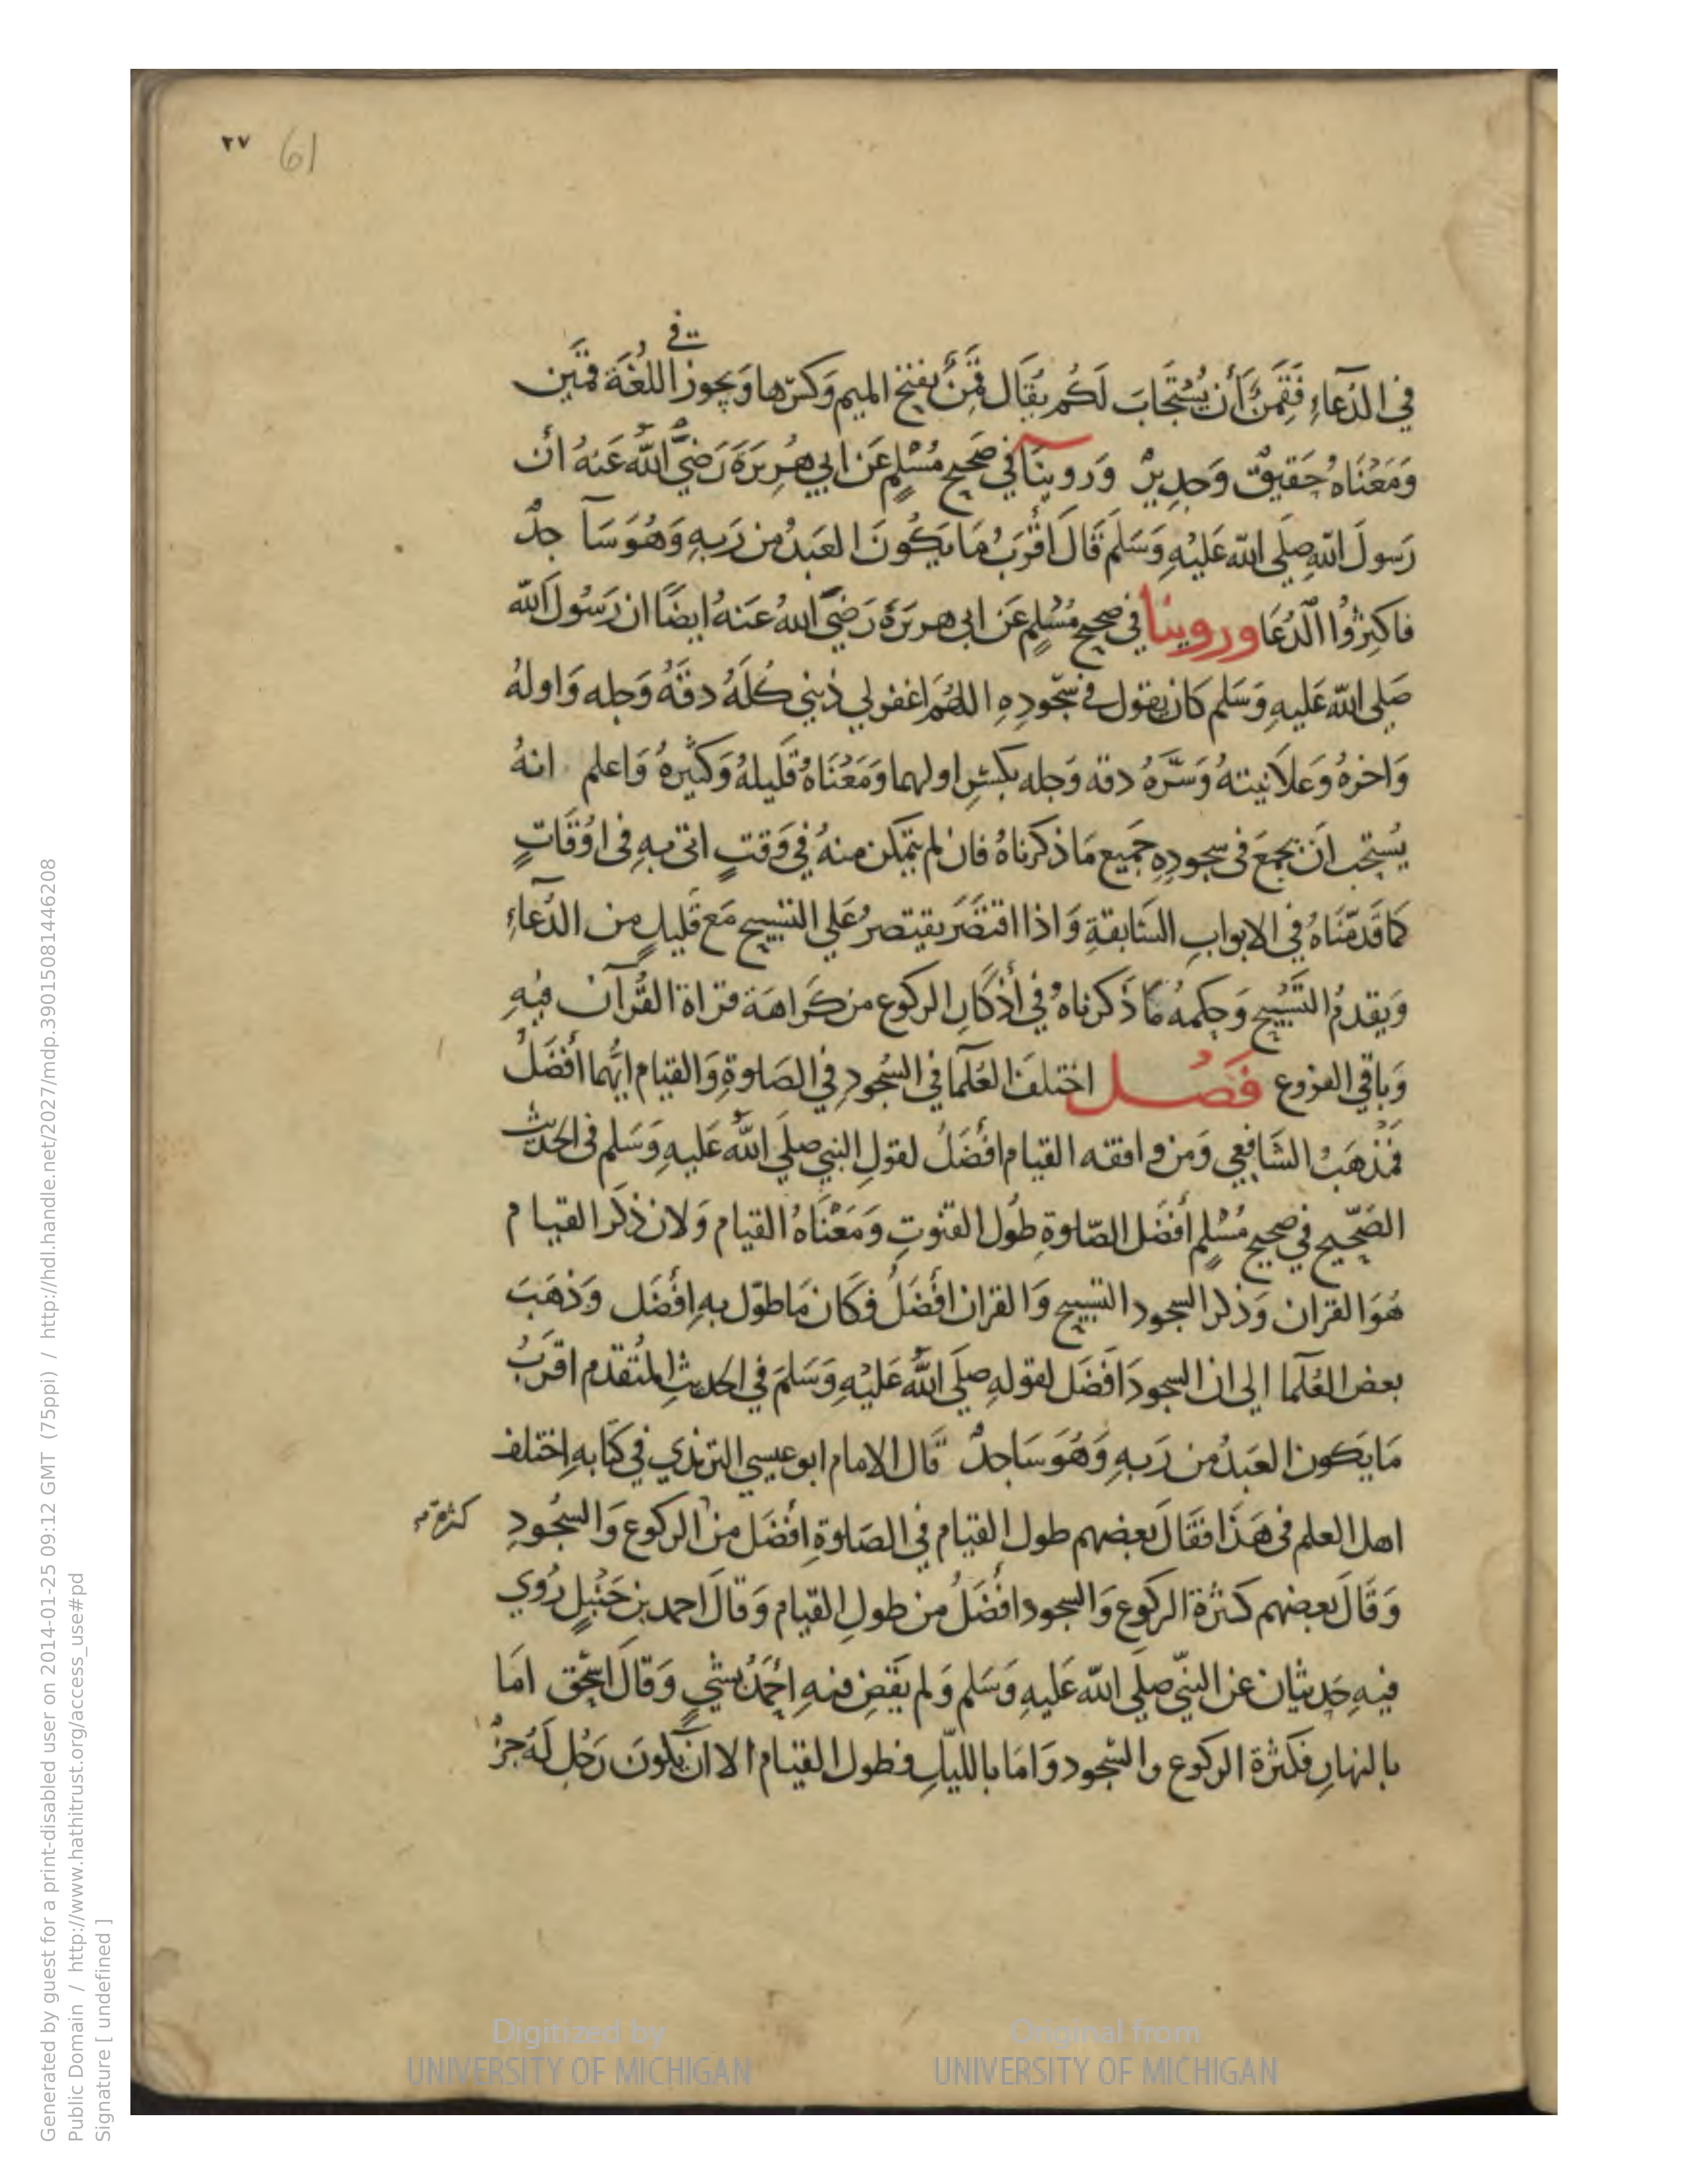 ٢٧ 61
في
في الدُّعاءِ فَقَمَنٌ أَن يُسْتَجَابَ لَكُم يُقَال قَمَنٌ بفتح الميم وَكسرّها وَيجوز اللغُة قَمين
وَمَعْنَاهُ حَقيقٌ وَجدِيرٌ وَروينَا في صَحيح مُسْلمٍ عَن ابي هُرِيرَةَ رَضيَّ اللهُ عَنهُ أن
رَسولَ اللهِ صلى الله عَليْهِ وَسَلم قَالَ أقْرَبُ مَا يكُونَ العَبدُ من رَبهِ وَهُوَ سَاجدٌ
فاكثِرُوا الدُّعَا وروينا في صحيح مُسْلمٍ عَن ابي هريرَةَ رَضيَّ اللهُ عَنهُ ايضًا ان رَسُولَ الله
صَلى الله عَليهِ وَسَلم كَان يقول في سجودِهِ اللهُمَ اغفر لي ذنبي كُلهُ دقهُ وَجله وَاولهُ
وَاخرهُ وَعلاَنيتهُ وَسرَّهُ دقه وَجله بكسْرِ اولهما وَمَعْنَاهُ قَليلهُ وَكَثيرهُ وَاعلم انهُ
يُستحب انَ يجمعَ فى سجودِهِ جَميع مَا ذكَرناهُ فان لم يتمكن منهُ في وَقتٍ اتى بهِ فى اوْقَاتٍ
كما قَدمّنَاهُ في الابوابِ السَّابقةِ وَاذا اقتصَرَ يقتصرُ عَلي التسبيح مَع قَليلٍ من الدُّعآءِ
وَيقدمُ التسَّبيح وَحكمهُ مَا ذَكرناهُ في أذكَارِ الركوع من كَراهَة قراة القُرآن فيهِ
وَباقي الفروع فَصُل اختلفَ العُلَما في السُجود في الصَلوةِ وَالقيام ايُّهما أفضَلُ
فمَذهَبُ الشَافعي وَمن وافقه القيام افْضَلُ لقولِ النبي صلَي اللهُ عَليهِ وَسَلم فى الحديث
الصَحّيح في صحيح مُسْلمٍ أفضَل الصّلوةِ طوُل القنوتِ وَمَعْنَاهُ القيام وَلان ذكر القيام
هُوَ القران وَذكر السجود التسبيح وَالقران أفْضَلُ فكَان مَا طوّل بهِ افْضَل وَذهَبَ
بعض العُلَمآ الى ان السجودَ افَضَل لقولهِ صلَى اللهُ عَليْهِ وَسَلمَ في الحديث المتُقدم اقرَبُ
مَا يَكون العَبدُ من رَبهِ وَهُوَ سَاجدٌ قَال الامام ابو عيسي الترمذي في كتَابهِ اختلف
اهل العلم فى هَذَا فقَالَ بعضهم طول القيام في الصَلوةِ افضَل من الركوع وَالسجُودِ
كثرة
وَقَالَ بعضهم كثرة الركوع وَالسجود افضَلُ من طولِ القيام وَقَالَ احمد بن حَنبْلٍ رُوي
فيهِ حَديثَان عَن النبّي صلَي الله عَليهِ وَسَلم وَلم يَقَضِ فيهِ احْمَدُ بشيٍ وَقالَ اسحَق امَا
بالنهارِ فكثرة الركوع والسُّجود وَامَا بالليّلِ فطول القيام الا ان يكونَ رَجُل لَهُ جزُ
Generated by guest for a print-disabled user on 2014-01-25 09:12 GMT (75ppi) / http://hdl.handle.net/2027/mdp.39015081446208
Public Domain / http://www.hathitrust.org/access_use#pd
Signature [ undefined ]
Digitized by UNIVERSITY OF MICHIGAN
Original from UNIVERSITY OF MICHIGAN